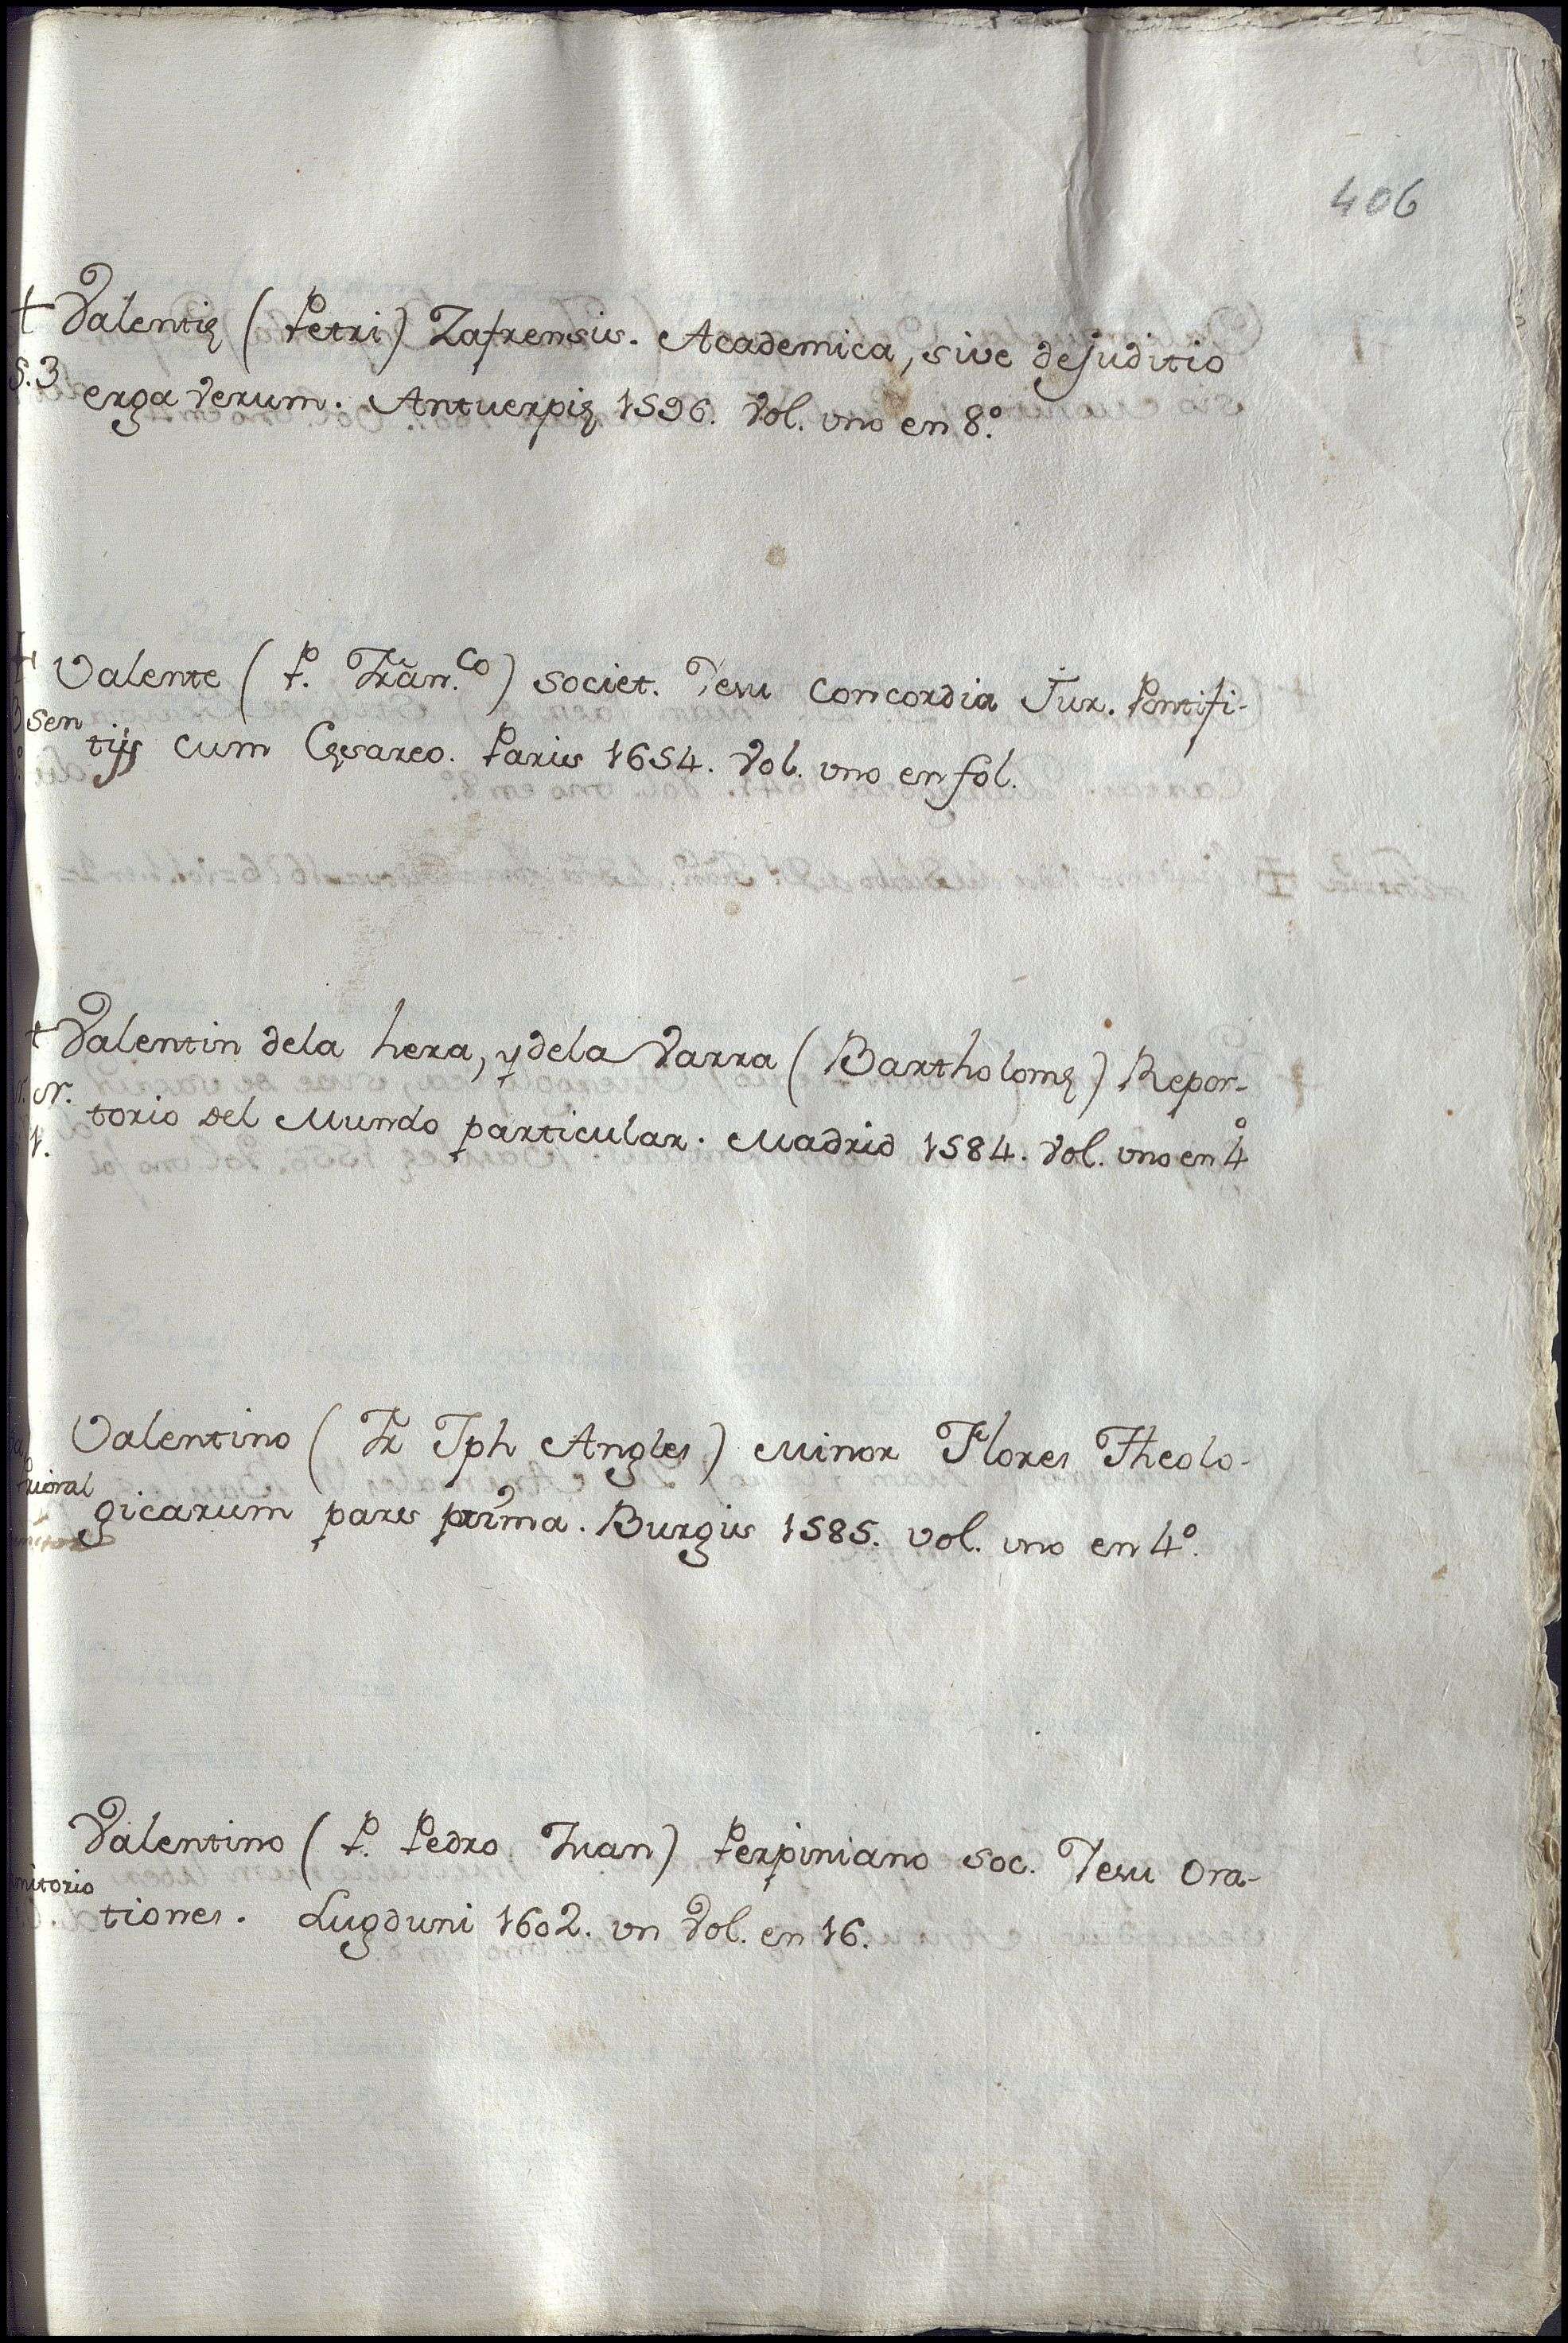 406
† Valentię (Petri) Zafrensis. Academica, sive de Juditio
S.3
erga verum. Antuerpię 1596. Vol. uno en 8.º
† Valente (P. Frãn.co) Societ. Jesu Concordia Jur. Pontifi-
tijs cum Cęsareo. Paris 1654. Vol. uno en fol.
† Valentin dela hera, y dela Varra (Bartholomę) Repor-
N.
torio Del Mundo particular. Madrid 1584. Vol. uno en 4º
1.
Valentino (Fr Jph Angles) Minor Flores Theolo-
gicarum pars prima. Burgis 1585. vol. uno en 4º.
Valentino (P. Pedro Juan) Perpiniano soc. Jesu Ora-
tiones. Lugduni 1602. un Vol. en 16.